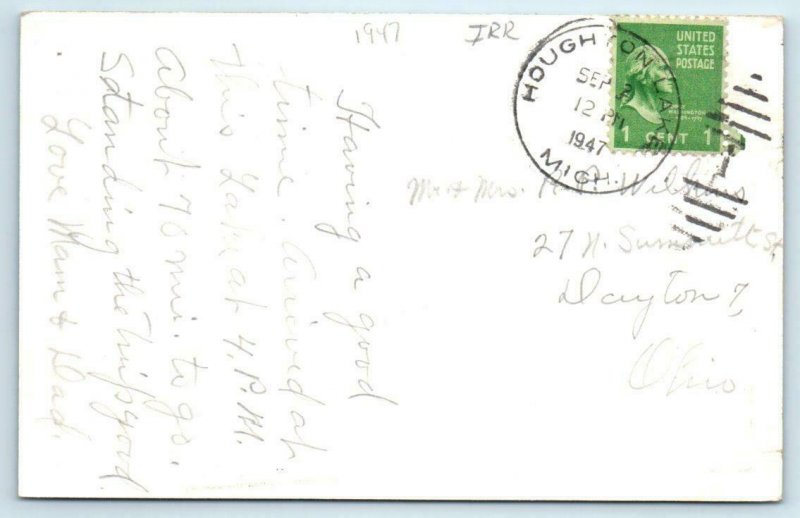 1947
IRR
HOUGHTON LAKE
SEP 2
12 PM
1947
MICH.
UNITED
STATES
POSTAGE
WASHINGTON
1 CENT 1
Mr & Mrs. Wilkins
27 N. Summitt St
Dayton 7,
Ohio
Having a good
time. Arrived at
This Lake at 4. P.M.
About 70 mi. to go.
Standing the trip good
Love Mam & Dad.